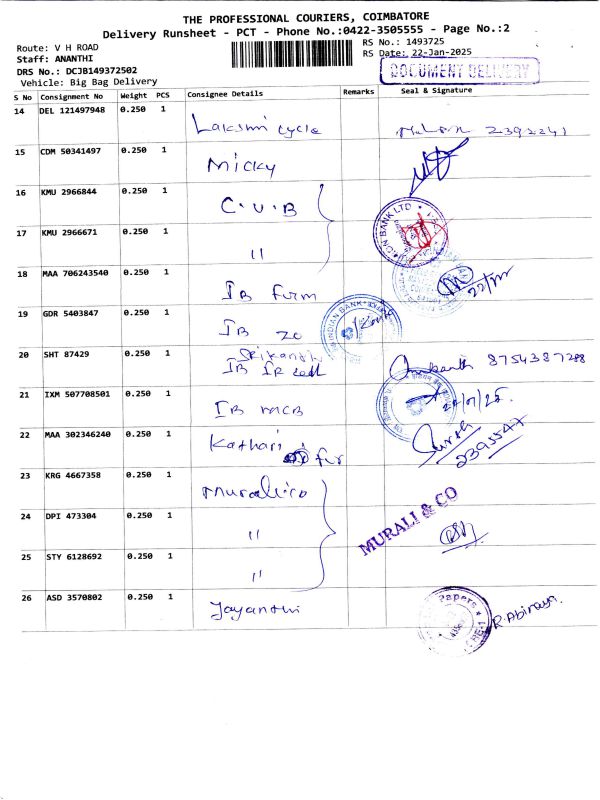 THE PROFESSIONAL COURIERS, COIMBATORE
Delivery Runsheet - PCT - Phone No.:0422-3505555 - Page No.:2
Route: V H ROAD RS No.: 1493725
Staff: ANANTHI RS Date: 22-Jan-2025
DRS No.: DCJB149372502
Vehicle: Big Bag Delivery DOCUMENT DELIVERY
S No Consignment No Weight PCS Consignee Details Remarks Seal & Signature
14 DEL 121497948 0.250 1 Lakshmi cycle 2392241
15 CDM 50341497 0.250 1 Micky
16 KMU 2966844 0.250 1 C.U.B
17 KMU 2966671 0.250 1 "
18 MAA 706243540 0.250 1 IB firm
19 GDR 5403847 0.250 1 IB ZO INDIAN BANK
20 SHT 87429 0.250 1 Srikanth 8754387288
IB IR cell
21 IXM 507708501 0.250 1 IB MCB
22 MAA 302346240 0.250 1 Kathari fur Suresh 2395547
23 KRG 4667358 0.250 1 Murali co
24 DPI 473304 0.250 1 " MURALI & CO
25 STY 6128692 0.250 1 "
26 ASD 3570802 0.250 1 Jayanthi Papers R. Abinaya.